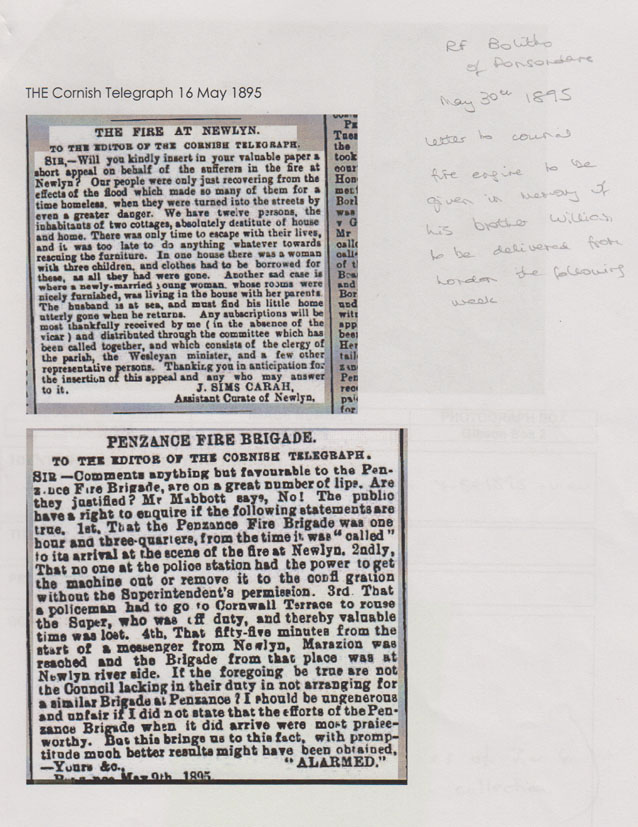 THE Cornish Telegraph 16 May 1895
THE FIRE AT NEWLYN.
TO THE EDITOR OF THE CORNISH TELEGRAPH.
SIR,—Will you kindly insert in your valuable paper a
short appeal on behalf of the sufferers in the fire at
Newlyn? Our people were only just recovering from the
effects of the flood which made so many of them for a
time homeless, when they were turned into the streets by
even a greater danger. We have twelve persons, the
inhabitants of two cottages, absolutely destitute of house
and home. There was only time to escape with their lives,
and it was too late to do anything whatever towards
rescuing the furniture. In one house there was a woman
with three children, and clothes had to be borrowed for
these, as all they had were gone. Another sad case is
where a newly-married young woman, whose rooms were
nicely furnished, was living in the house with her parents.
The husband is at sea, and must find his little home
utterly gone when he returns. Any subscriptions will be
most thankfully received by me (in the absence of the
vicar) and distributed through the committee which has
been called together, and which consists of the clergy of
the parish, the Wesleyan minister, and a few other
representative persons. Thanking you in anticipation for
the insertion of this appeal and any who may answer
to it. J. SIMS CARAH,
Assistant Curate of Newlyn.
PENZANCE FIRE BRIGADE.
TO THE EDITOR OF THE CORNISH TELEGRAPH.
SIR—Comments anything but favourable to the Pen-
zance Fire Brigade, are on a great number of lips. Are
they justified? Mr Mabbott says, No! The public
have a right to enquire if the following statements are
true. 1st, That the Penzance Fire Brigade was one
hour and three-quarters, from the time it was "called"
to its arrival at the scene of the fire at Newlyn. 2ndly,
That no one at the police station had the power to get
the machine out or remove it to the confl gration
without the Superintendent's permission. 3rd. That
a policeman had to go to Cornwall Terrace to rouse
the Super, who was off duty, and thereby valuable
time was lost. 4th, That fifty-five minutes from the
start of a messenger from Newlyn, Marazion was
reached and the Brigade from that place was at
Newlyn river side. If the foregoing be true are not
the Council lacking in their duty in not arranging for
a similar Brigade at Penzance? I should be ungenerous
and unfair if I did not state that the efforts of the Pen-
zance Brigade when it did arrive were most praise-
worthy. But this brings us to this fact, with promp-
titude much better results might have been obtained,
—Yours &c., "ALARMED."
May 9th, 1895.
RF Bolitho
of Ponsandane
May 30th 1895
Letter to council
fire engine to be
given in memory of
his brother William
to be delivered from
London the following
week
collection